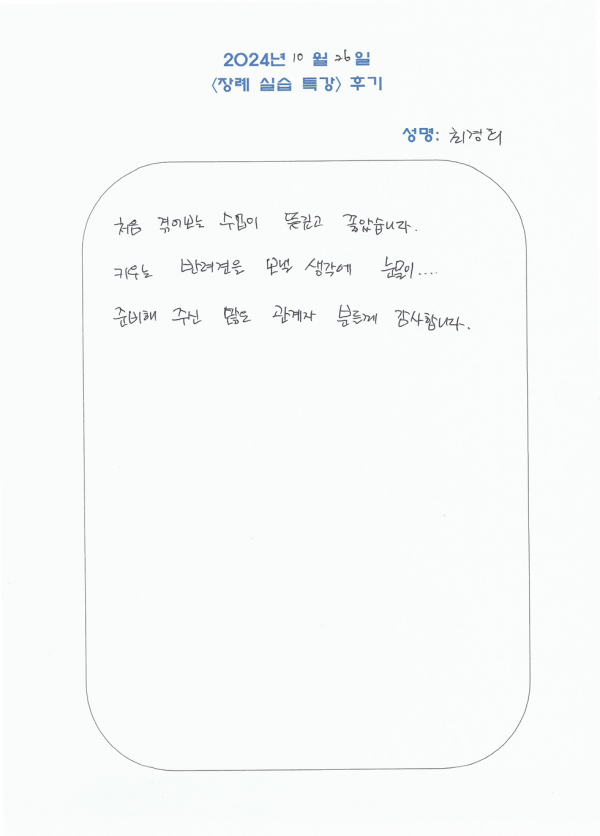 2024년 10 월 26 일
<장례 실습 특강> 후기
성명: 최경희
처음 겪어보는 수업이 뜻깊고 좋았습니다.
키우는 반려견을 보낼 생각에 눈물이....
준비해 주신 많은 관계자 분들께 감사합니다.